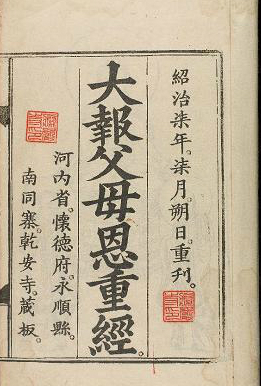 紹治柒年。柒月。朔日。重刊。
大報父母恩重經。
河内省。懷德府。永順縣。
南同寨。乾安寺。藏板。